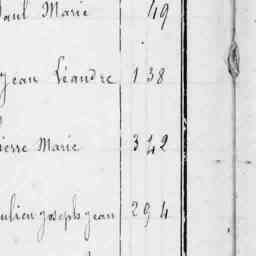 Paul Marie 49
Jean Léandre 138
Pierre Marie 342
Julien joseph jean 294